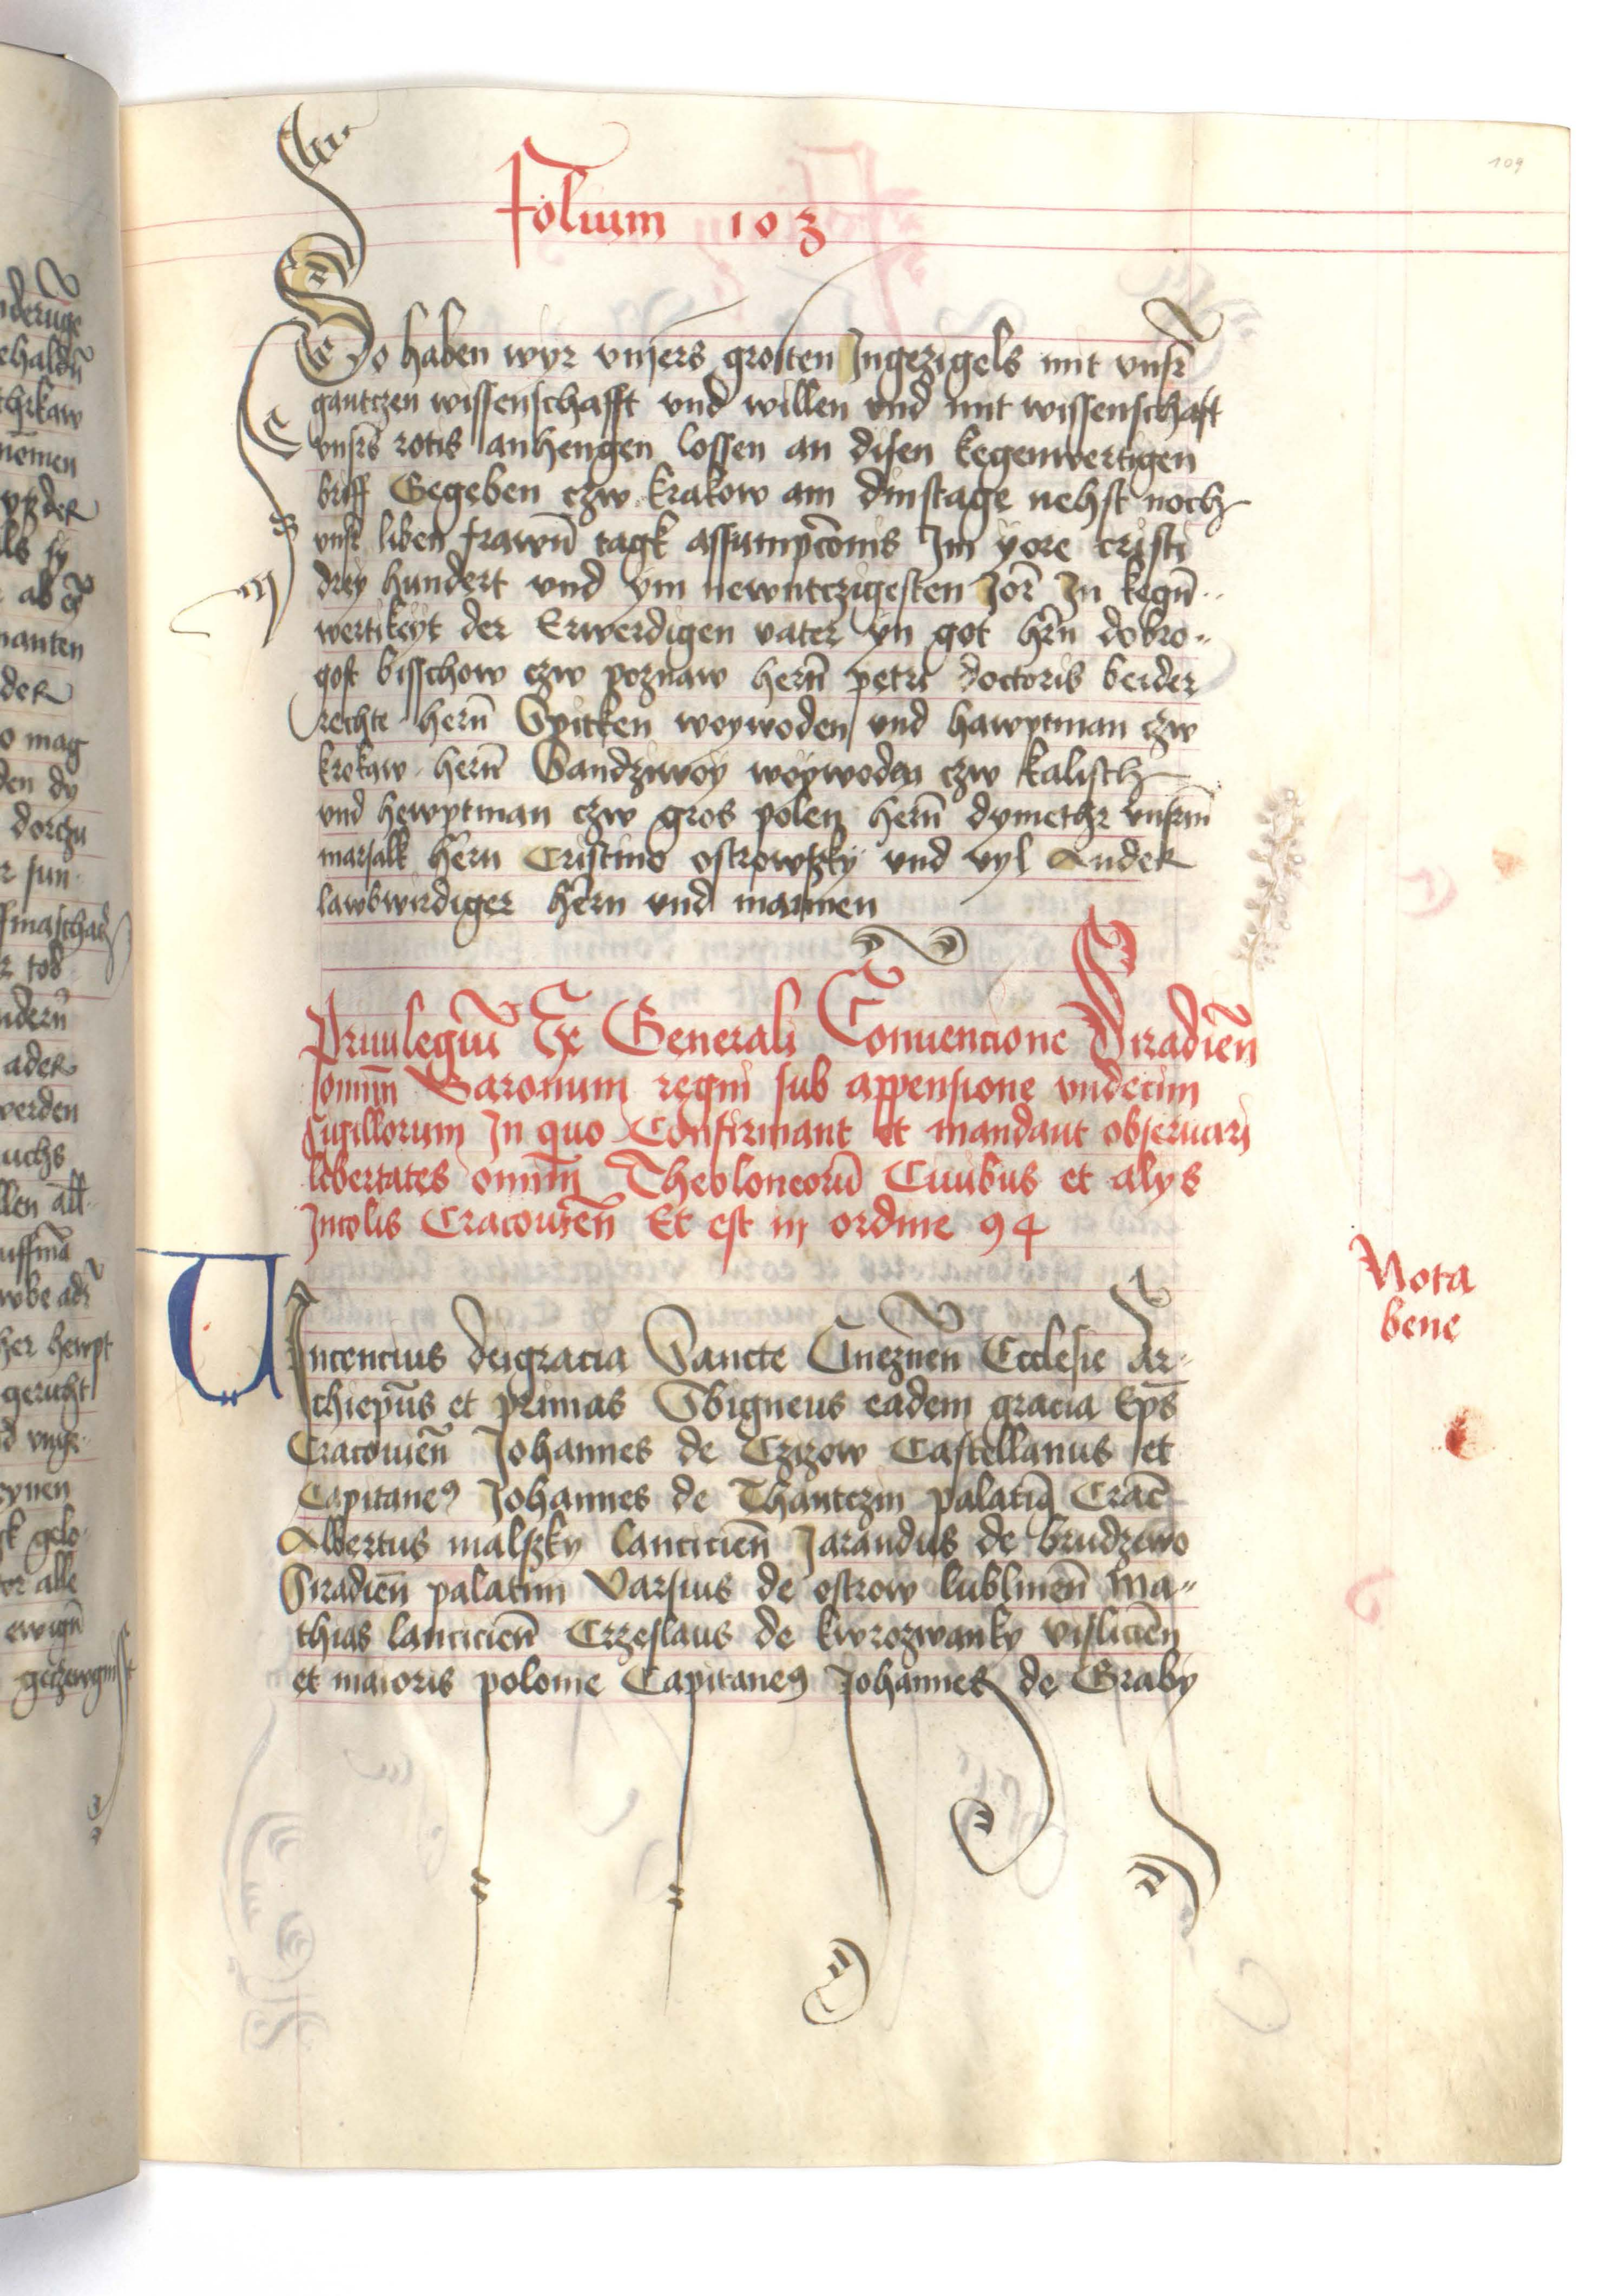 109
Folium 103
So haben wyr vnsers grosten Ingezigels mit vnsr̄
gantczen wissenschafft vnd willen vnd mit wissenschaft
vnsrs rotis anhengen lossen an disen kegenwertigen
briff Gegeben czw krakow am dinstage nehst noch
vnsr liben frawn̄ tagk assumpc̄onis Im yore cristi
drey hundert vnd ym newntczigesten Jor̄ In kegn̄
wertikeyt der Erwerdigen vater yn got hr̄n dobro-
gost bisschow czw poznaw hern̄ petri doctoris beider
rechte hern̄ Spitken woywoden vnd hawptman czw
krokaw hern̄ Sandziwoy woywoden czw kalisch
vnd hewptman czw gros polen hern̄ dymethr vnsrm̄
marsalk hern Cristino ostrowszky vnd vyl Ander
lawbwirdiger hern vnd mannen
Priuilegiū Ex Generali Conuencione Siradien̄
somm̄ Baronum regni sub appensione vndecim
sigillorum In quo Confirmant et mandant obseruari
libertates omm̄ Theoloneorū Ciuibus et alys
Incolis Cracouien̄ Et est in ordine 94
Nota
bene
VIncencius deigracia Sancte Gneznen̄ Ecclesie Ar-
chiepūs et primas Sbigneus eadem gracia Ep̄s
Cracouien̄ Johannes de Czizow Castellanus et
Capitane9 Johannes de Thantczin palatin9 Crac̄
Albertus malszky lancicien̄ Jarandus de brudzewo
Siradien̄ palatini Varsius de ostrow lublinen̄ Ma-
thias lancicien̄ Crzeslaus de kwrozwanky vislicien̄
et maioris polonie Capitane9 Johannes de Graby